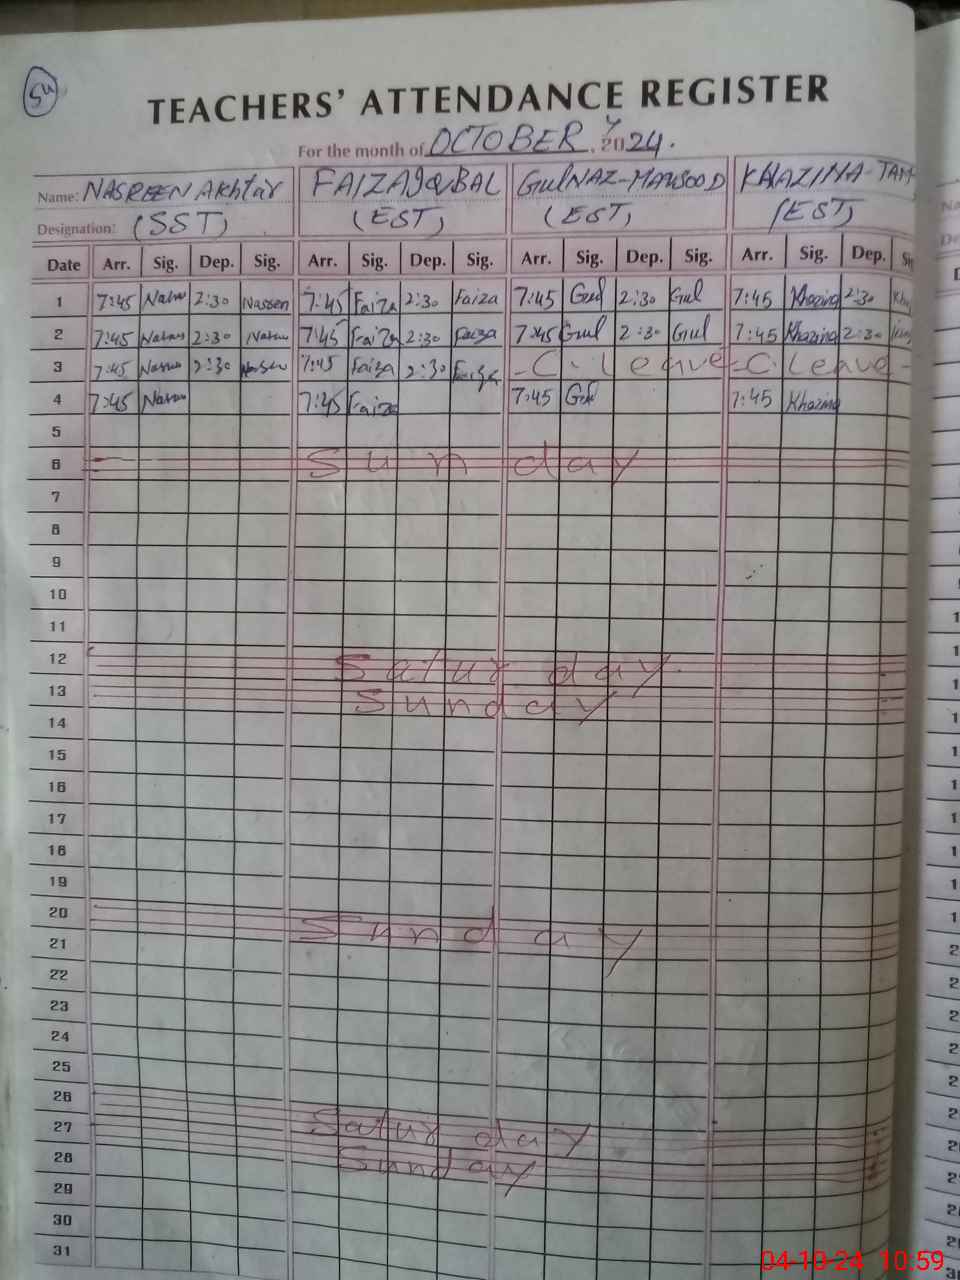 54
TEACHERS' ATTENDANCE REGISTER
For the month of OCTOBER, 2024.
Name: NASREEN AKhtar FAIZA IQBAL GulNAZ-MAHSOOD KHAZINA-TAH
Designation: (SST) (EST) (EST) (EST)
Date Arr. Sig. Dep. Sig. Arr. Sig. Dep. Sig. Arr. Sig. Dep. Sig. Arr. Sig. Dep. Sig
1 7:45 2:30 Nasreen 7:45 Faiza 2:30 Faiza 7:45 Gul 2:30 Gul 7:45 Khazina 2:30
2 7:45 2:30 7:45 Faiza 2:30 Faiza 7:45 Gul 2:30 Gul 7:45 Khazina 2:30
3 7:45 2:30 7:45 Faiza 2:30 Faiza -C. leave -C. Leave-
4 7:45 7:45 Faiza 7:45 Gul 7:45 Khazina
5
6 Sunday
7
8
9
10
11
12 Saturday.
13 Sunday
14
15
16
17
18
19
20 Sunday
21
22
23
24
25
26
27 Saturday
28 Sunday
29
30
31
04-10-24 10:59